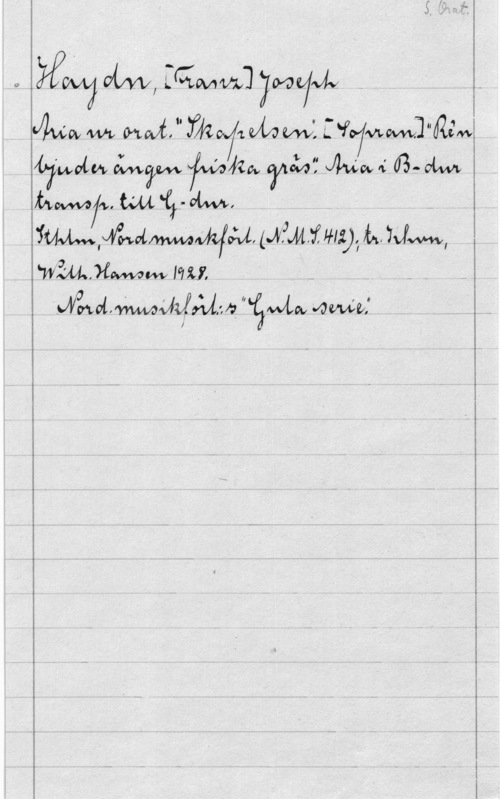 S. Orat.
Haydn, [Franz] Joseph
Aria ur orat. "Skapelsen". [Sopran.] "Ren
bjuder ängen friska gräs". Aria i B-dur
transp. till G-dur.
Sthlm, Nord. musikförl. (N.M.S. 412); tr. Khvn,
Wilh. Hansen 1928.
Nord. musikförl:s "Gula serie".